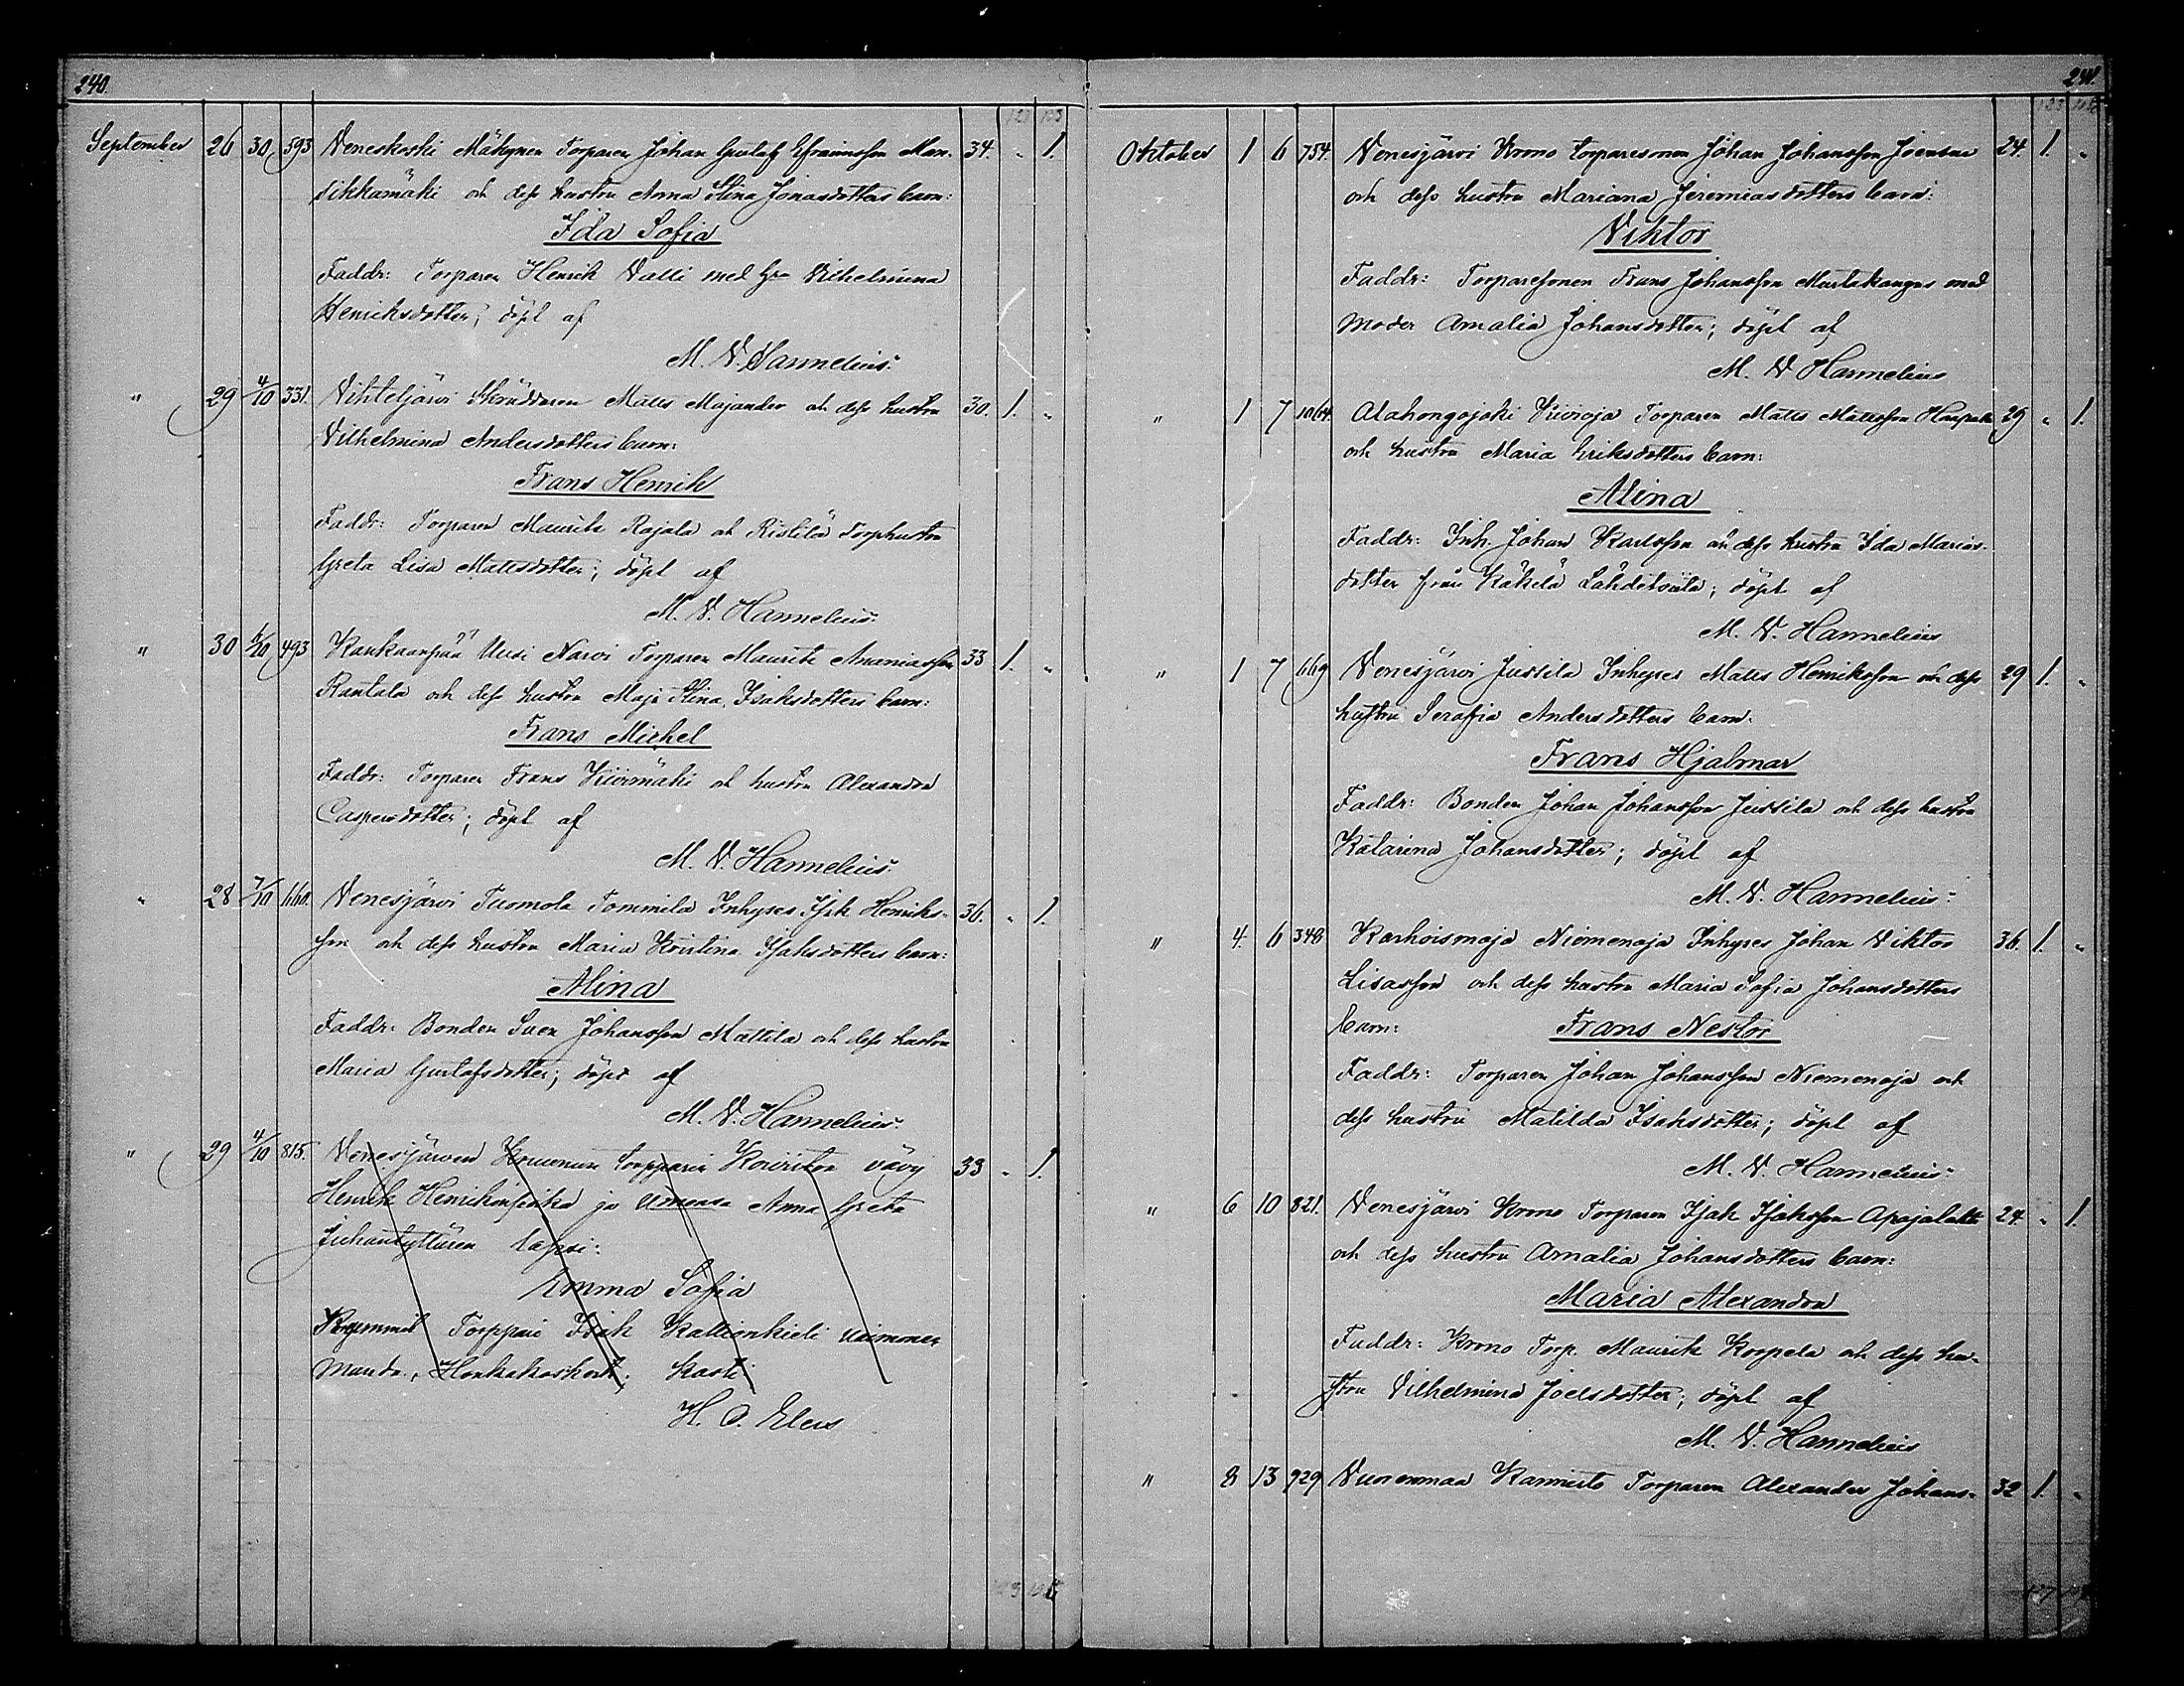 240.
September 26 30 593 Veneskoski Mäkynen Torparen Johan Gustaf Efraimsson Man- 34. " 1.
sikkamäki och dess hustru Anna Stina Jonasdotters barn:
Ida Sofia
Faddr: Torparen Henrik Valli med hu Vilhelmina
Henriksdotter; döpt af
M. V. Hannelius.
" 29 4/10 331. Vihteljärvi Skräddaren Matts Majander och dess hustru 30. 1. "
Vilhelmina Andersdotters barn:
Frans Henrik
Faddr: Torparen Maurits Rajala och Ristilä Torphustru
Greta Lisa Mattsdotter; döpt af
M. V. Hannelius.
" 30 6/10 493 Kankaanpää Uusi Narvi Torparen Maurits Ananiasson 33 1. "
Rantala och dess hustru Maja Stina Isaksdotters barn:
Frans Michel
Faddr: Torparen Frans Kiviomäki och hustru Alexandra
Caspersdotter; döpt af
M. V. Hannelius.
" 28 7/10 660. Venesjärvi Tuomola Tommila Inhyses Isak Henriks- 36. " 1.
son och dess hustru Maria Kristina Isaksdotters barn:
Alina
Faddr: Bonden Sven Johansson Mattila och dess hustru
Maria Gustafsdotter; döpt af
M. V. Hannelius.
" 29 4/10 815. Venesjärven Kruunun torpparin Koiviston vävy 33 " 1.
Henrik Henrikinpoika ja vaimonsa Anna Greta
Juhantyttären lapsi:
Emma Sofia
Kummit Torppari Isak Kallionkieli vaimonen
Manda, Honkakoskelt; kasti
H. O. Elers
241.
Oktober 1 6 754. Venesjärvi Krono torparesonen Johan Johansson Joensuu 24. 1. "
och dess hustru Mariana Jeremiasdotters barn:
Viktor
Faddr: Torparesonen Frans Johansson Mustakangas med
moder Amalia Johansdotter; döpt af
M. V. Hannelius
" 1 7 1064. Alahongojoki Kivioja Torparen Matts Mattsson 29 " 1.
och hustru Maria Eriksdotters barn:
Alina
Faddr: Inh. Johan Karlsson och dess hustru Ida Marias-
dotter från Käkelä Lähdetvuta; döpt af
M. V. Hannelius
" 1 7 669 Venesjärvi Jussila Inhyses Matts Henriksson och dess 29 1. "
hustru Serafia Andersdotters barn:
Frans Hjalmar
Faddr: Bonden Johan Johansson Jussila och dess hustru
Katarina Johansdotter; döpt af
M. V. Hannelius.
" 4. 6 348 Karhoismaja Niemenoja Inhyses Johan Viktor 36. 1. "
Lisasson och dess hustru Maria Sofia Johansdotters
barn: Frans Nestor
Faddr: Torparen Johan Johansson Niemenoja och
dess hustru Matilda Isaksdotter; döpt af
M. V. Hannelius.
" 6 10 821. Venesjärvi Krono Torparen Isak Isaksson Apajalahti 24. " 1.
och dess hustru Amalia Johansdotters barn:
Maria Alexandra
Faddr: Krono Torp. Maurits Korpela och dess hu-
stru Vilhelmina Joelsdotter; döpt af
M. V. Hannelius
" 8 13 929 Vuorenmaa Kannisto Torparen Alexander Johans- 32 1. "